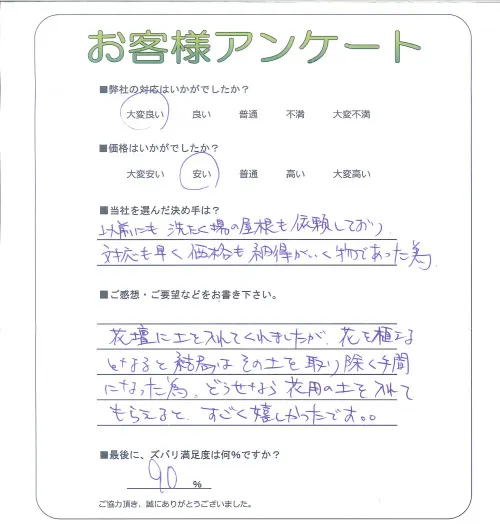 お客様アンケート
■弊社の対応はいかがでしたか？
大変良い 良い 普通 不満 大変不満
■価格はいかがでしたか？
大変安い 安い 普通 高い 大変高い
■当社を選んだ決め手は？
以前にも洗たく場の屋根も依頼しており、
対応も早く価格も納得がいく物であった為
■ご感想・ご要望などをお書き下さい。
花壇に土を入れてくれましたが、花を植える
となると結局はその土を取り除く手間
になった為、どうせなら花用の土を入れて
もらえると、すごく嬉しかったです。。
■最後に、ズバリ満足度は何%ですか？
90 %
ご協力頂き、誠にありがとうございました。